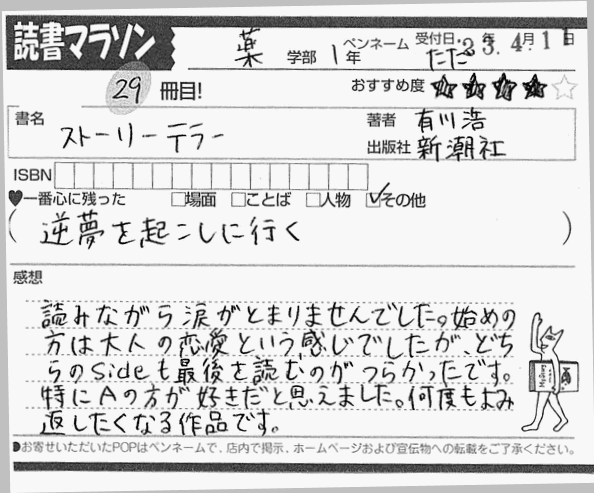 読書マラソン 薬 学部 1年 ペンネーム ただ 受付日: 23.4月11日
29 冊目! おすすめ度 ★★★★☆
書名 ストーリーテラー 著者 有川浩
出版社 新潮社
ISBN
♥一番心に残った □場面 □ことば □人物 ☑その他
(逆夢を起こしに行く)
感想
読みながら涙がとまりませんでした。始めの
方は大人の恋愛という感じでしたが、どち
らのsideも最後を読むのがつらかったです。
特にAの方が好きだと思えました。何度もよみ
返したくなる作品です。
お寄せいただいたPOPはペンネームで、店内で掲示、ホームページおよび宣伝物への転載をご了承ください。